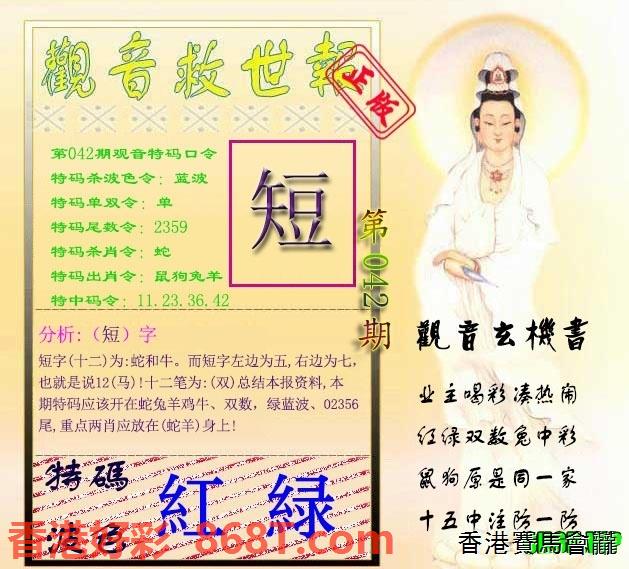 觀音救世報
正版
第042期观音特码口令
特码杀波色令：蓝波
特码单双令：单
特码尾数令：2359
特码杀肖令：蛇
特码出肖令：鼠狗兔羊
特中码令：11.23.36.42
短
第042期
分析:（短）字
短字(十二)为:蛇和牛。而短字左边为五,右边为七,
也就是说12(马)!十二笔为:(双)总结本报资料,本
期特码应该开在蛇兔羊鸡牛、双数，绿蓝波、02356
尾,重点两肖应放在(蛇羊)身上!
特碼
波色
紅 绿
香港好彩 868T.com
觀音玄機書
业主喝彩凑热闹
红绿双数兔中彩
鼠狗原是同一家
十五中注防一防
香港賽馬會